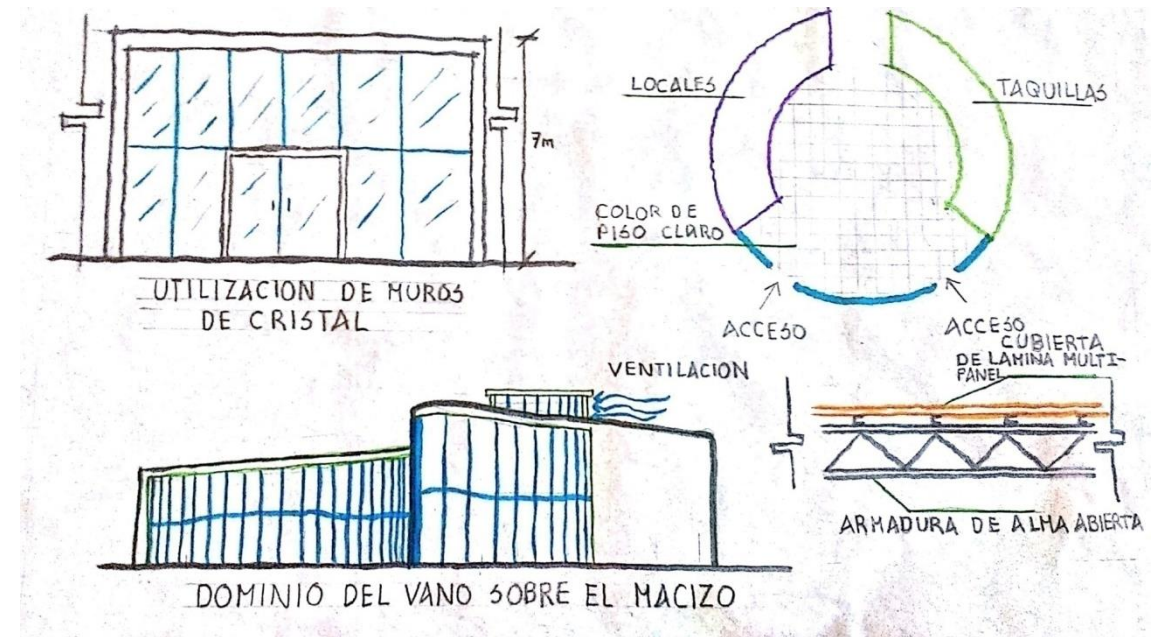 7m
UTILIZACION DE MUROS
DE CRISTAL
LOCALES
TAQUILLAS
COLOR DE
PISO CLARO
ACCESO
ACCESO
CUBIERTA
DE LAMINA MULTI-
PANEL
ARMADURA DE ALMA ABIERTA
VENTILACION
DOMINIO DEL VANO SOBRE EL MACIZO